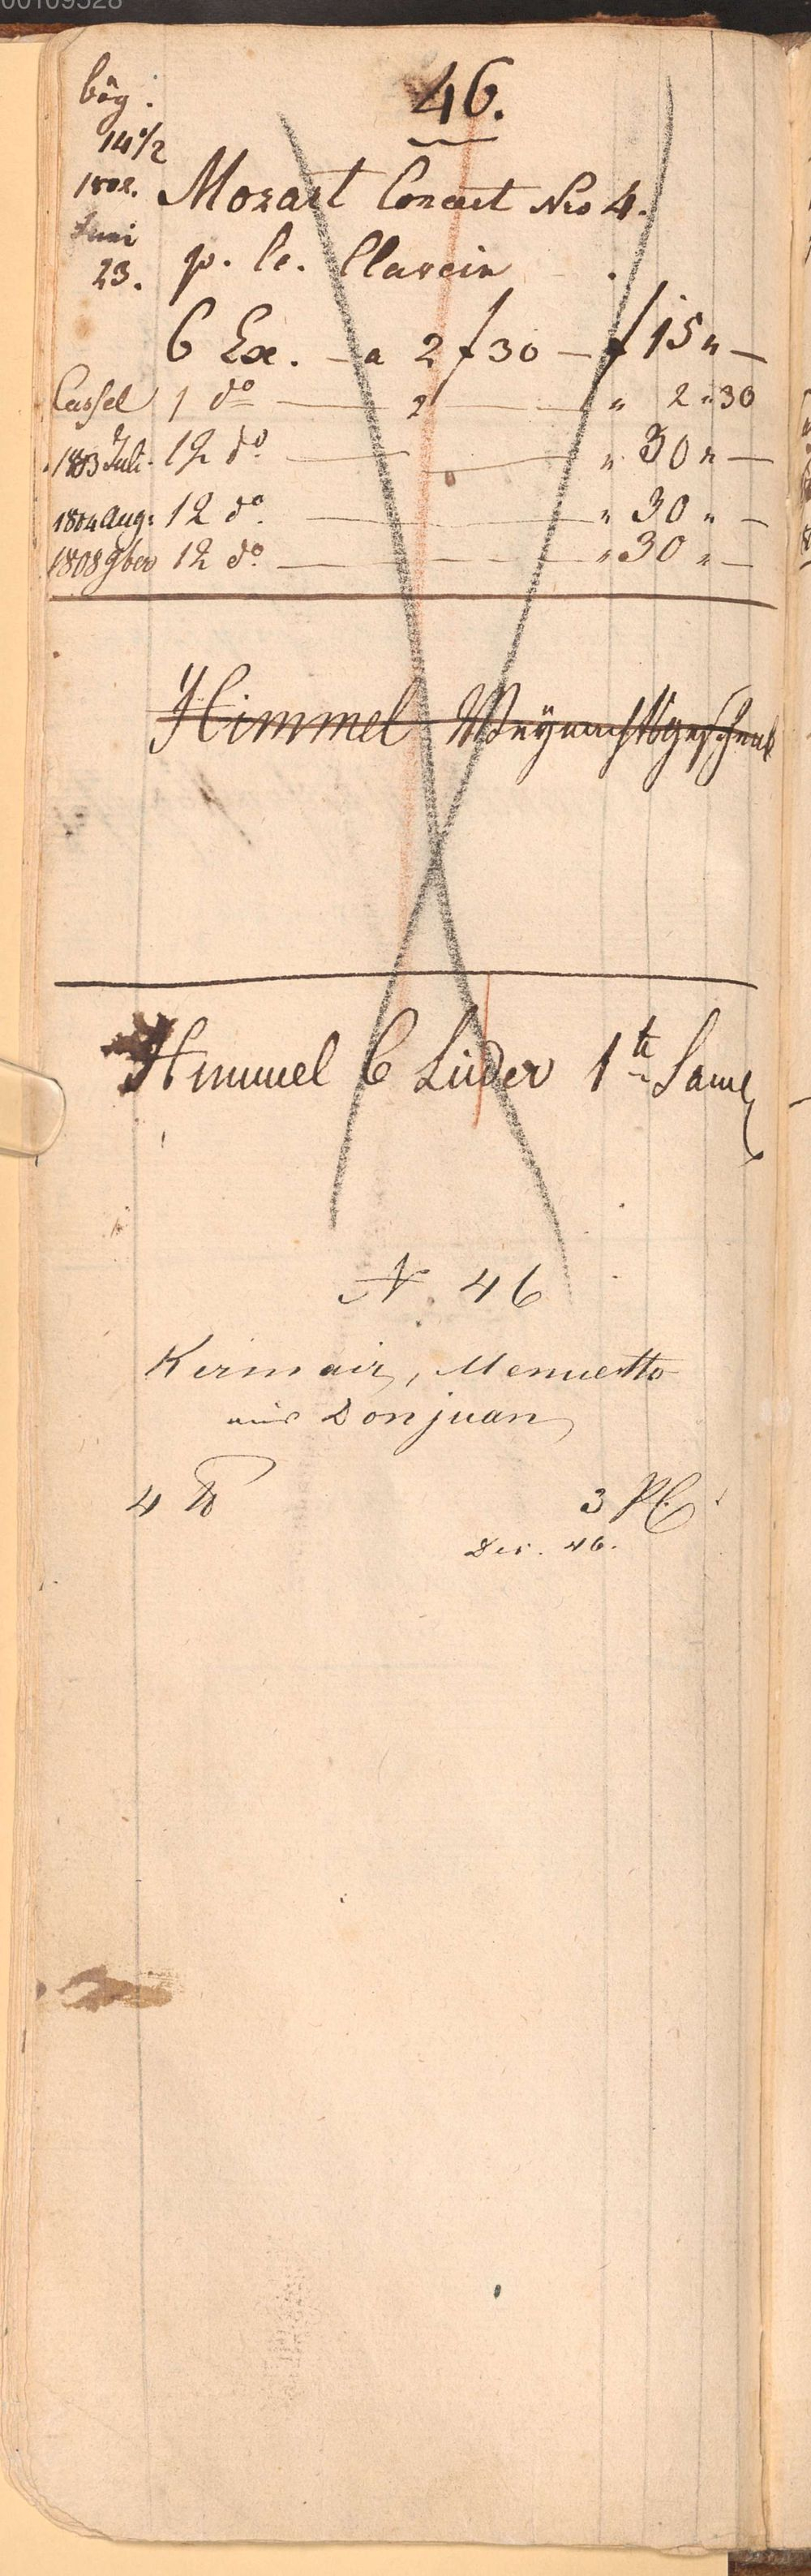 00109528
bög.
46.
14 1/2
1802. Mozart Concert Nro 4.
Juni
23. p. le. Clavecin
6 Ex. – a 2 f 30 – f 15 " –
Cassel 1 do 2 " 2 " 30
1803 Juli. 12 do. " 30 " –
1804 Aug: 12 do. " 30 " –
1808 9ber 12 do. " 30 " –
Himmel Weynachtsgeschenk
Himmel 6 Lieder 1te Saml
N. 46
Kirmair, Menuetto
aus Don juan
4 3 Pl.
Dec. 46.